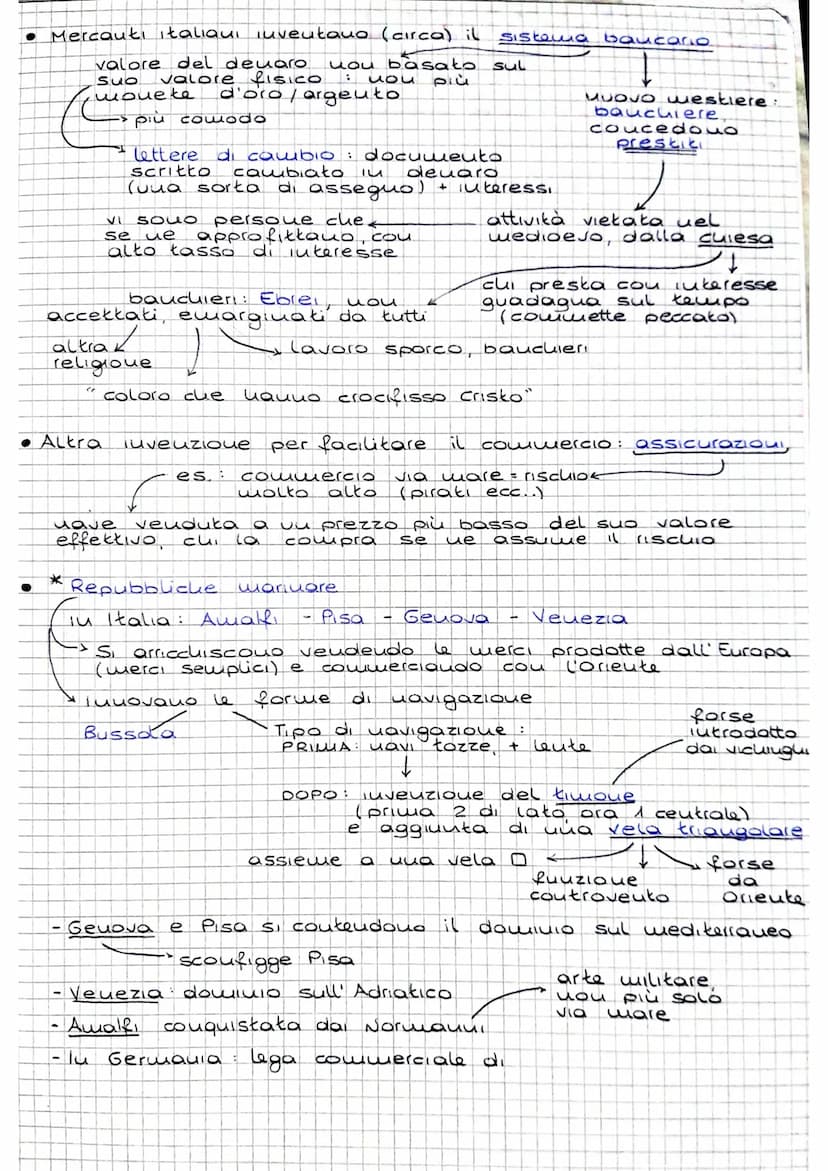 • Mercanti italiani inventano (circa) il sistema bancario
valore del denaro non basato sul
suo valore fisico : non più
monete d'oro/argento
→ più comodo
nuovo mestiere:
banchiere,
concedono
prestiti
lettere di cambio : documento
scritto cambiato in denaro
(una sorta di assegno) + interessi
attività vietata nel
medioevo, dalla chiesa
vi sono persone che
se ne approfittano, con
alto tasso di interesse
chi presta con interesse
guadagna sul tempo
(commette peccato)
banchieri: Ebrei, non
accettati, emarginati da tutti
altra
religione
lavoro sporco, banchieri
"coloro che hanno crocifisso Cristo"
• Altra invenzione per facilitare il commercio: assicurazioni,
es. : commercio via mare = rischio
molto alto (pirati ecc..)
nave venduta a un prezzo più basso del suo valore
effettivo, chi la compra se ne assume il rischio
• * Repubbliche marinare
in Italia: Amalfi - Pisa - Genova - Venezia
→ Si arricchiscono vendendo le merci prodotte dall'Europa
(merci semplici) e commerciando con l'oriente
innovano le forme di navigazione
Bussola
Tipo di navigazione :
PRIMA: navi tozze, + lente
forse
introdotto
dai vichinghi
DOPO: invenzione del timone
(prima 2 di lato, ora 1 centrale)
e aggiunta di una vela triangolare
assieme a una vela □
funzione
controvento
forse
da
Oriente
- Genova e Pisa si contendono il dominio sul mediterraneo
sconfigge Pisa
- Venezia: dominio sull'Adriatico
- Amalfi conquistata dai Normanni
arte militare,
non più solo
via mare
- In Germania : lega commerciale di